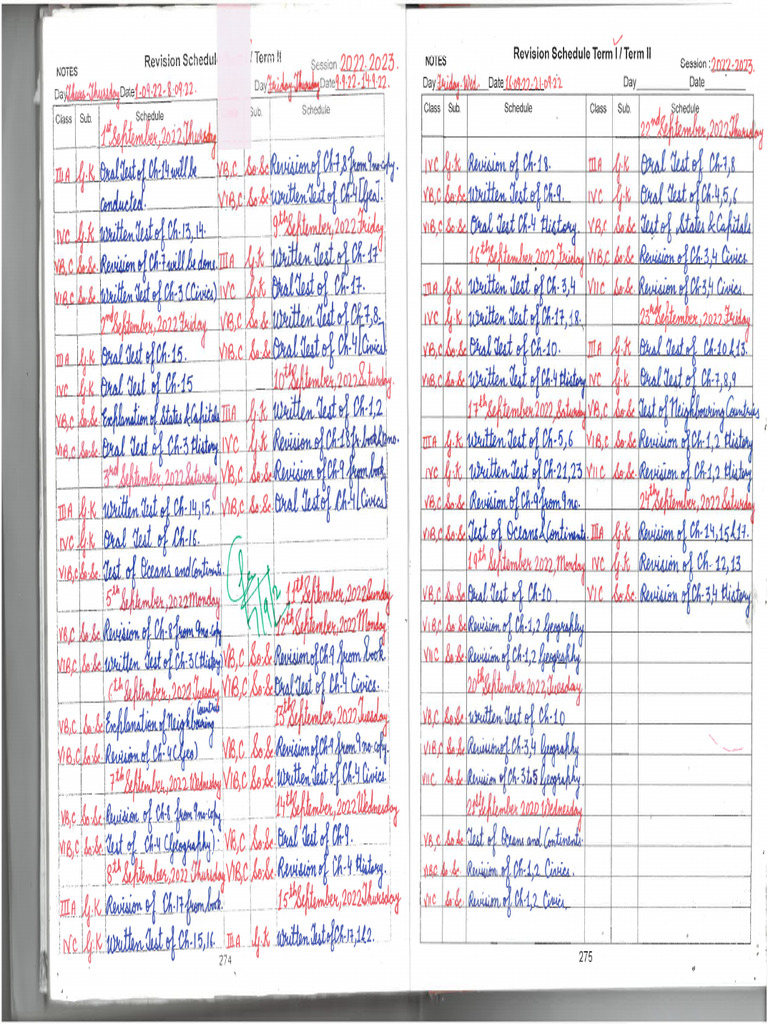 NOTES
Revision Schedule / Term II
Session 2022-2023.
Day Thurs-Thursday Date 1-09-22-8-09.22
Day Friday Thursday Date 9-9-22-14-9.22
Class Sub. Schedule
1st September, 2022 Thursday
III A G.K Oral Test of Ch-14 will be
conducted.
IV C G.K Written Test of Ch-13,14.
VB,C So.Sc Revision of Ch-7 will be done
VIB,C So.Sc Written Test of Ch-3 (Civics)
2nd September, 2022 Friday
III A G.K Oral Test of Ch-15.
IV C G.K Oral Test of Ch-15
VB,C So.Sc Explanation of States & Capitals
VIB,C So.Sc Oral Test of Ch-3 History
3rd September, 2022 Saturday
III A G.K Written Test of Ch-14,15.
IV C G.K Oral Test of Ch-16.
VIB,C So.Sc Test of Oceans and Continents
5th September, 2022 Monday
VB,C So.Sc Revision of Ch-8 from 9 no-copy
VIB,C So.Sc Written Test of Ch-3 (History)
6th September, 2022 Tuesday
VB,C So.Sc Explanation of Neighbouring Countries
VIB,C So.Sc Revision of Ch-4 (Geo)
7th September, 2022 Wednesday
VB,C So.Sc Revision of Ch-8 from 9 no-copy
VIB,C So.Sc Test of Ch-4 (Geography).
8th September, 2022 Thursday
III A G.K Revision of Ch-17 from book
IV C G.K Written Test of Ch-15,16.
Sub. Schedule
VB,C So.Sc Revision of Ch-7,8 from 9 no-copy.
VIB,C So.Sc Written Test of Ch-4 [Geo].
9th September, 2022 Friday
III A G.K Written Test of Ch-17
IV C G.K Oral Test of Ch-17.
VB,C So.Sc Written Test of Ch-7,8.
VIB,C So.Sc Oral Test of Ch-4 [Civics]
10th September, 2022 Saturday.
III A G.K Written Test of Ch-1,2
IV C G.K Revision of Ch-18 fr. book
VB,C So.Sc Revision of Ch-9 from book
VIB,C So.Sc Oral Test of Ch-4 [Civics]
11th September, 2022 Sunday
12th September, 2022 Monday
VB,C So.Sc Revision of Ch 9 from book
VIB,C So.Sc Oral Test of Ch-4 Civics.
13th September, 2022 Tuesday
VB,C So.Sc Revision of Ch-9 from 9 no-copy.
VIB,C So.Sc Written Test of Ch-4 Civics.
14th September, 2022 Wednesday
VB,C So.Sc Oral Test of Ch-9.
VIB,C So.Sc Revision of Ch-4 History.
15th September, 2022 Thursday
III A G.K Written Test of Ch-17, 1&2.
274
NOTES
Revision Schedule Term I / Term II
Session : 2022-2023.
Day Friday-Wed. Date 16-09-22-21-09-22
Day Date
Class Sub. Schedule
IV C G.K Revision of Ch-18.
VB,C So.Sc Written Test of Ch-9.
VIB,C So.Sc Oral Test Ch-4 History.
16th September, 2022, Friday
III A G.K Written Test of Ch-3,4
IV C G.K Written Test of Ch-17,18.
VB,C So.Sc Oral Test of Ch-10.
VIB,C So.Sc Written Test of Ch-4 History
17th September 2022, Saturday
III A G.K Written Test of Ch-5,6
IV C G.K Written Test of Ch-21,23
VB,C So.Sc Revision of Ch-9 from 9 no.
VIB,C So.Sc Test of Oceans & Continents.
19th September, 2022, Monday
VB,C So.Sc Oral Test of Ch-10
VIB,C So.Sc Revision of Ch-1,2 Geography
VII C So.Sc Revision of Ch-1,2 Geography
20th September, 2022, Tuesday
VB,C So.Sc Written Test of Ch-10
VIB,C So.Sc Revision of Ch-3,4 Geography
VII C So.Sc Revision of Ch-3 to 5 Geography
21st September 2020 Wednesday
VB,C So.Sc Test of Oceans and Continents.
VIB,C So.Sc Revision of Ch-1,2 Civics.
VII C So.Sc Revision of Ch-1,2 Civics
Class Sub. Schedule
22nd September, 2022, Thursday
III A G.K Oral Test of Ch-7,8
IV C G.K Oral Test of Ch-4,5,6
VB,C So.Sc Test of States & Capitals
VIB,C So.Sc Revision of Ch-3,4 Civics
VII C So.Sc Revision of Ch-3,4 Civics.
23rd September, 2022 Friday
III A G.K Oral Test of Ch-10 & 13.
IV C G.K Oral Test of Ch-7,8,9
VB,C So.Sc Test of Neighbouring Countries
VIB,C So.Sc Revision of Ch-1,2 History
VII C So.Sc Revision of Ch-1,2 History
24th September, 2022 Saturday
III A G.K Revision of Ch-14,15 & 17.
IV C G.K Revision of Ch-12,13
VI C So.Sc Revision of Ch-3,4 History
275